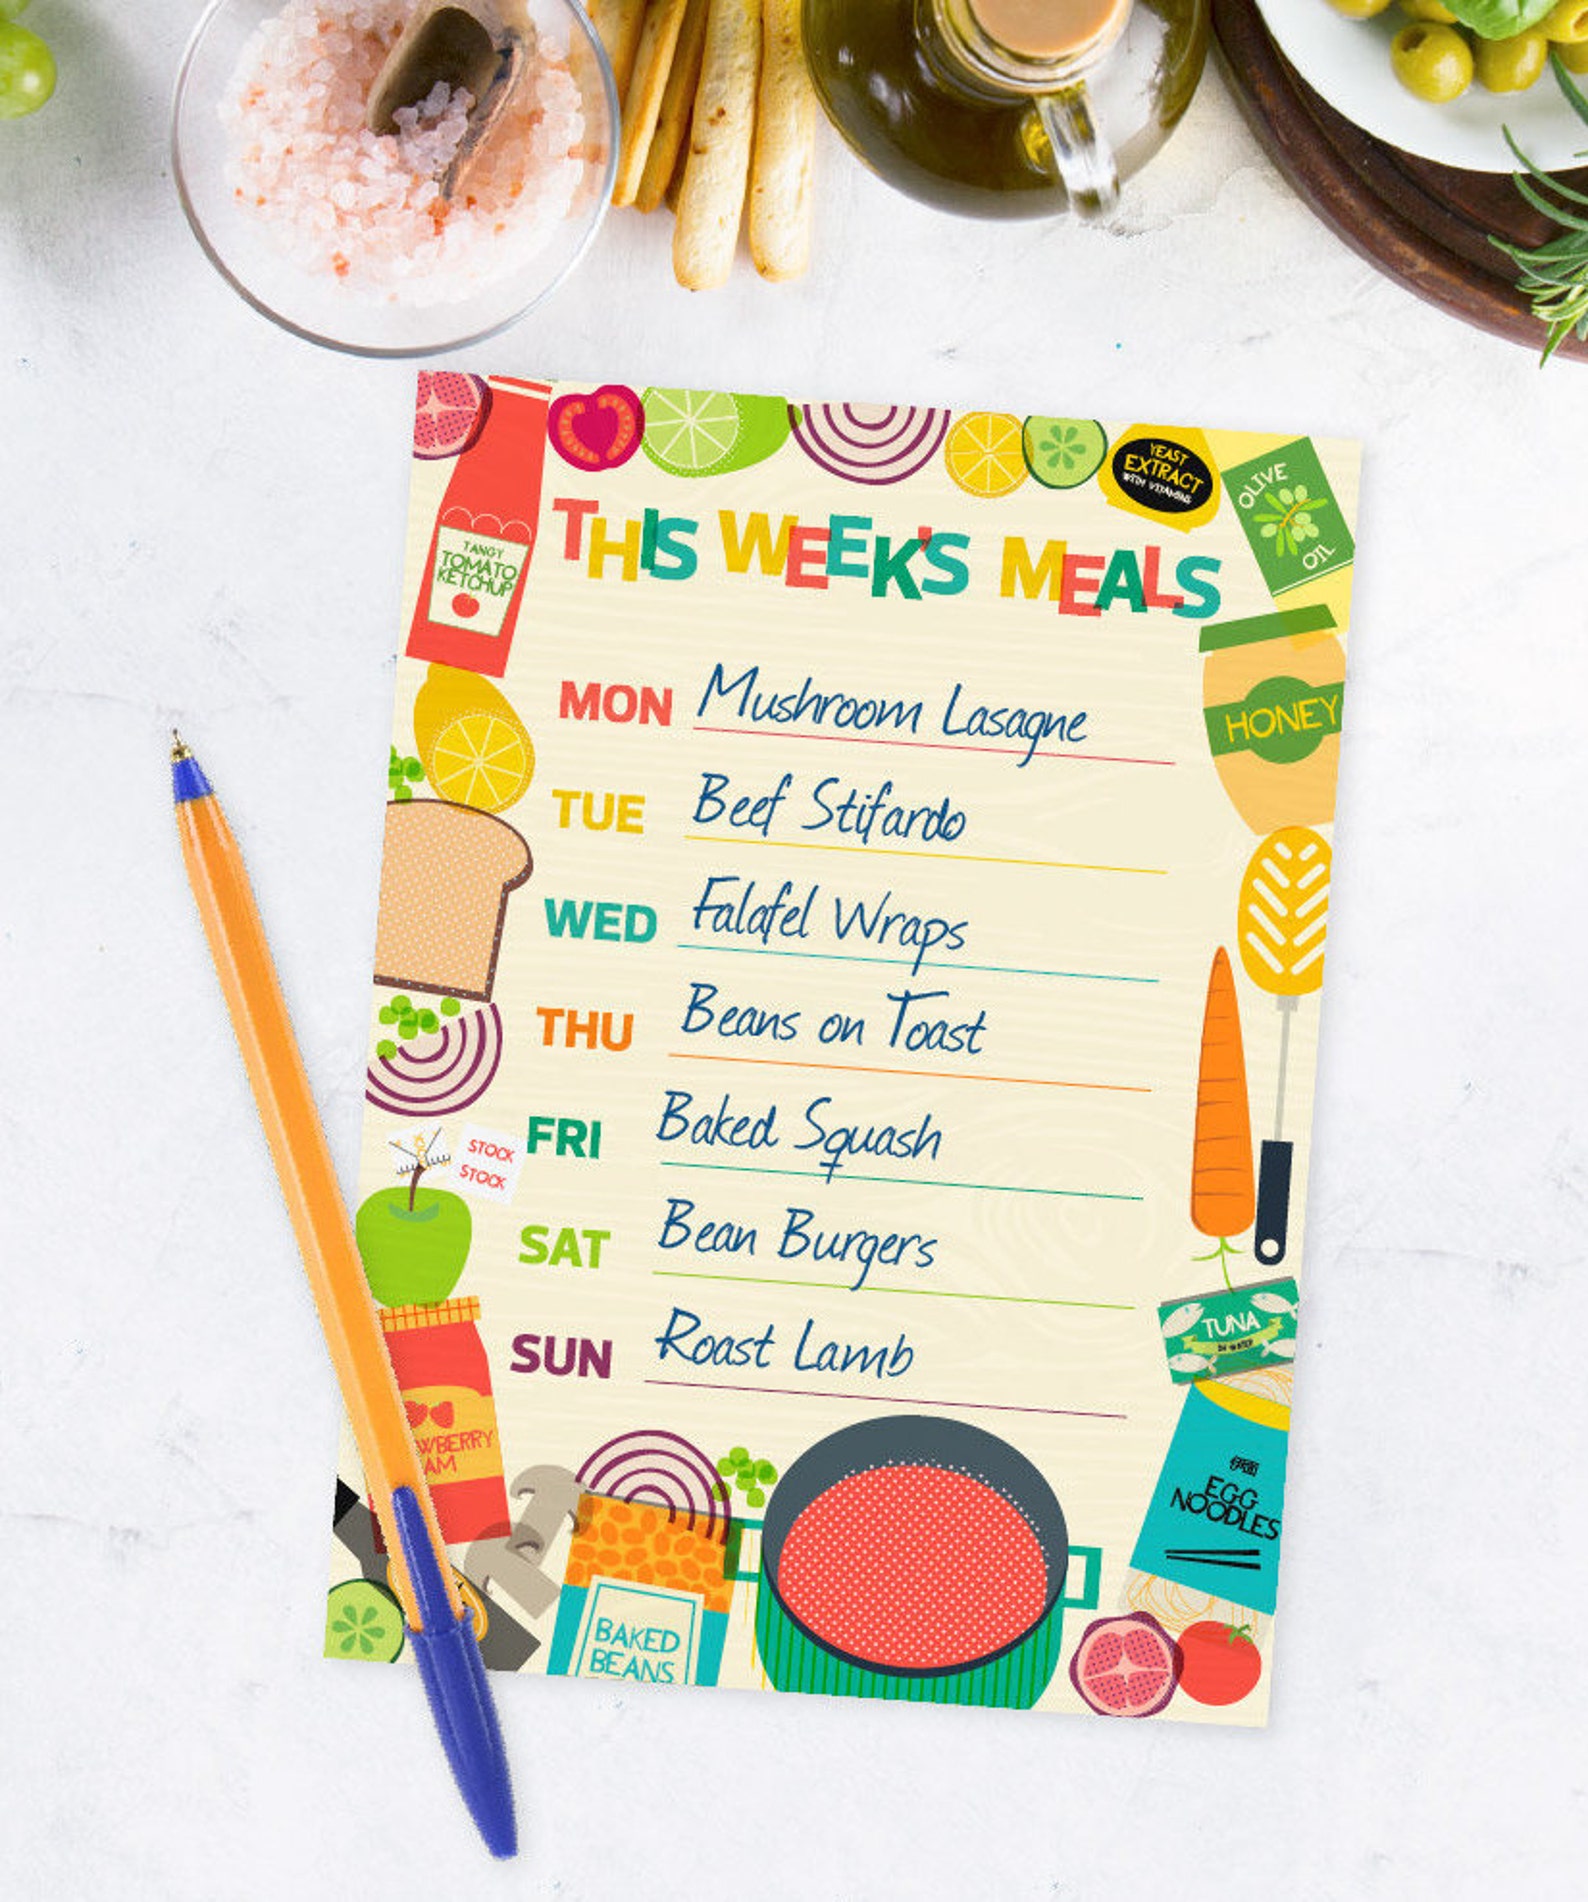 YEAST
EXTRACT
WITH VITAMINS
OLIVE
OIL
TANGY
TOMATO
KETCHUP
THIS WEEK'S MEALS
HONEY
MON Mushroom Lasagne
TUE Beef Stifardo
WED Falafel Wraps
THU Beans on Toast
FRI Baked Squash
SAT Bean Burgers
SUN Roast Lamb
STOCK
STOCK
TUNA
IN WATER
WBERRY
AM
EGG
NOODLES
BAKED
BEANS